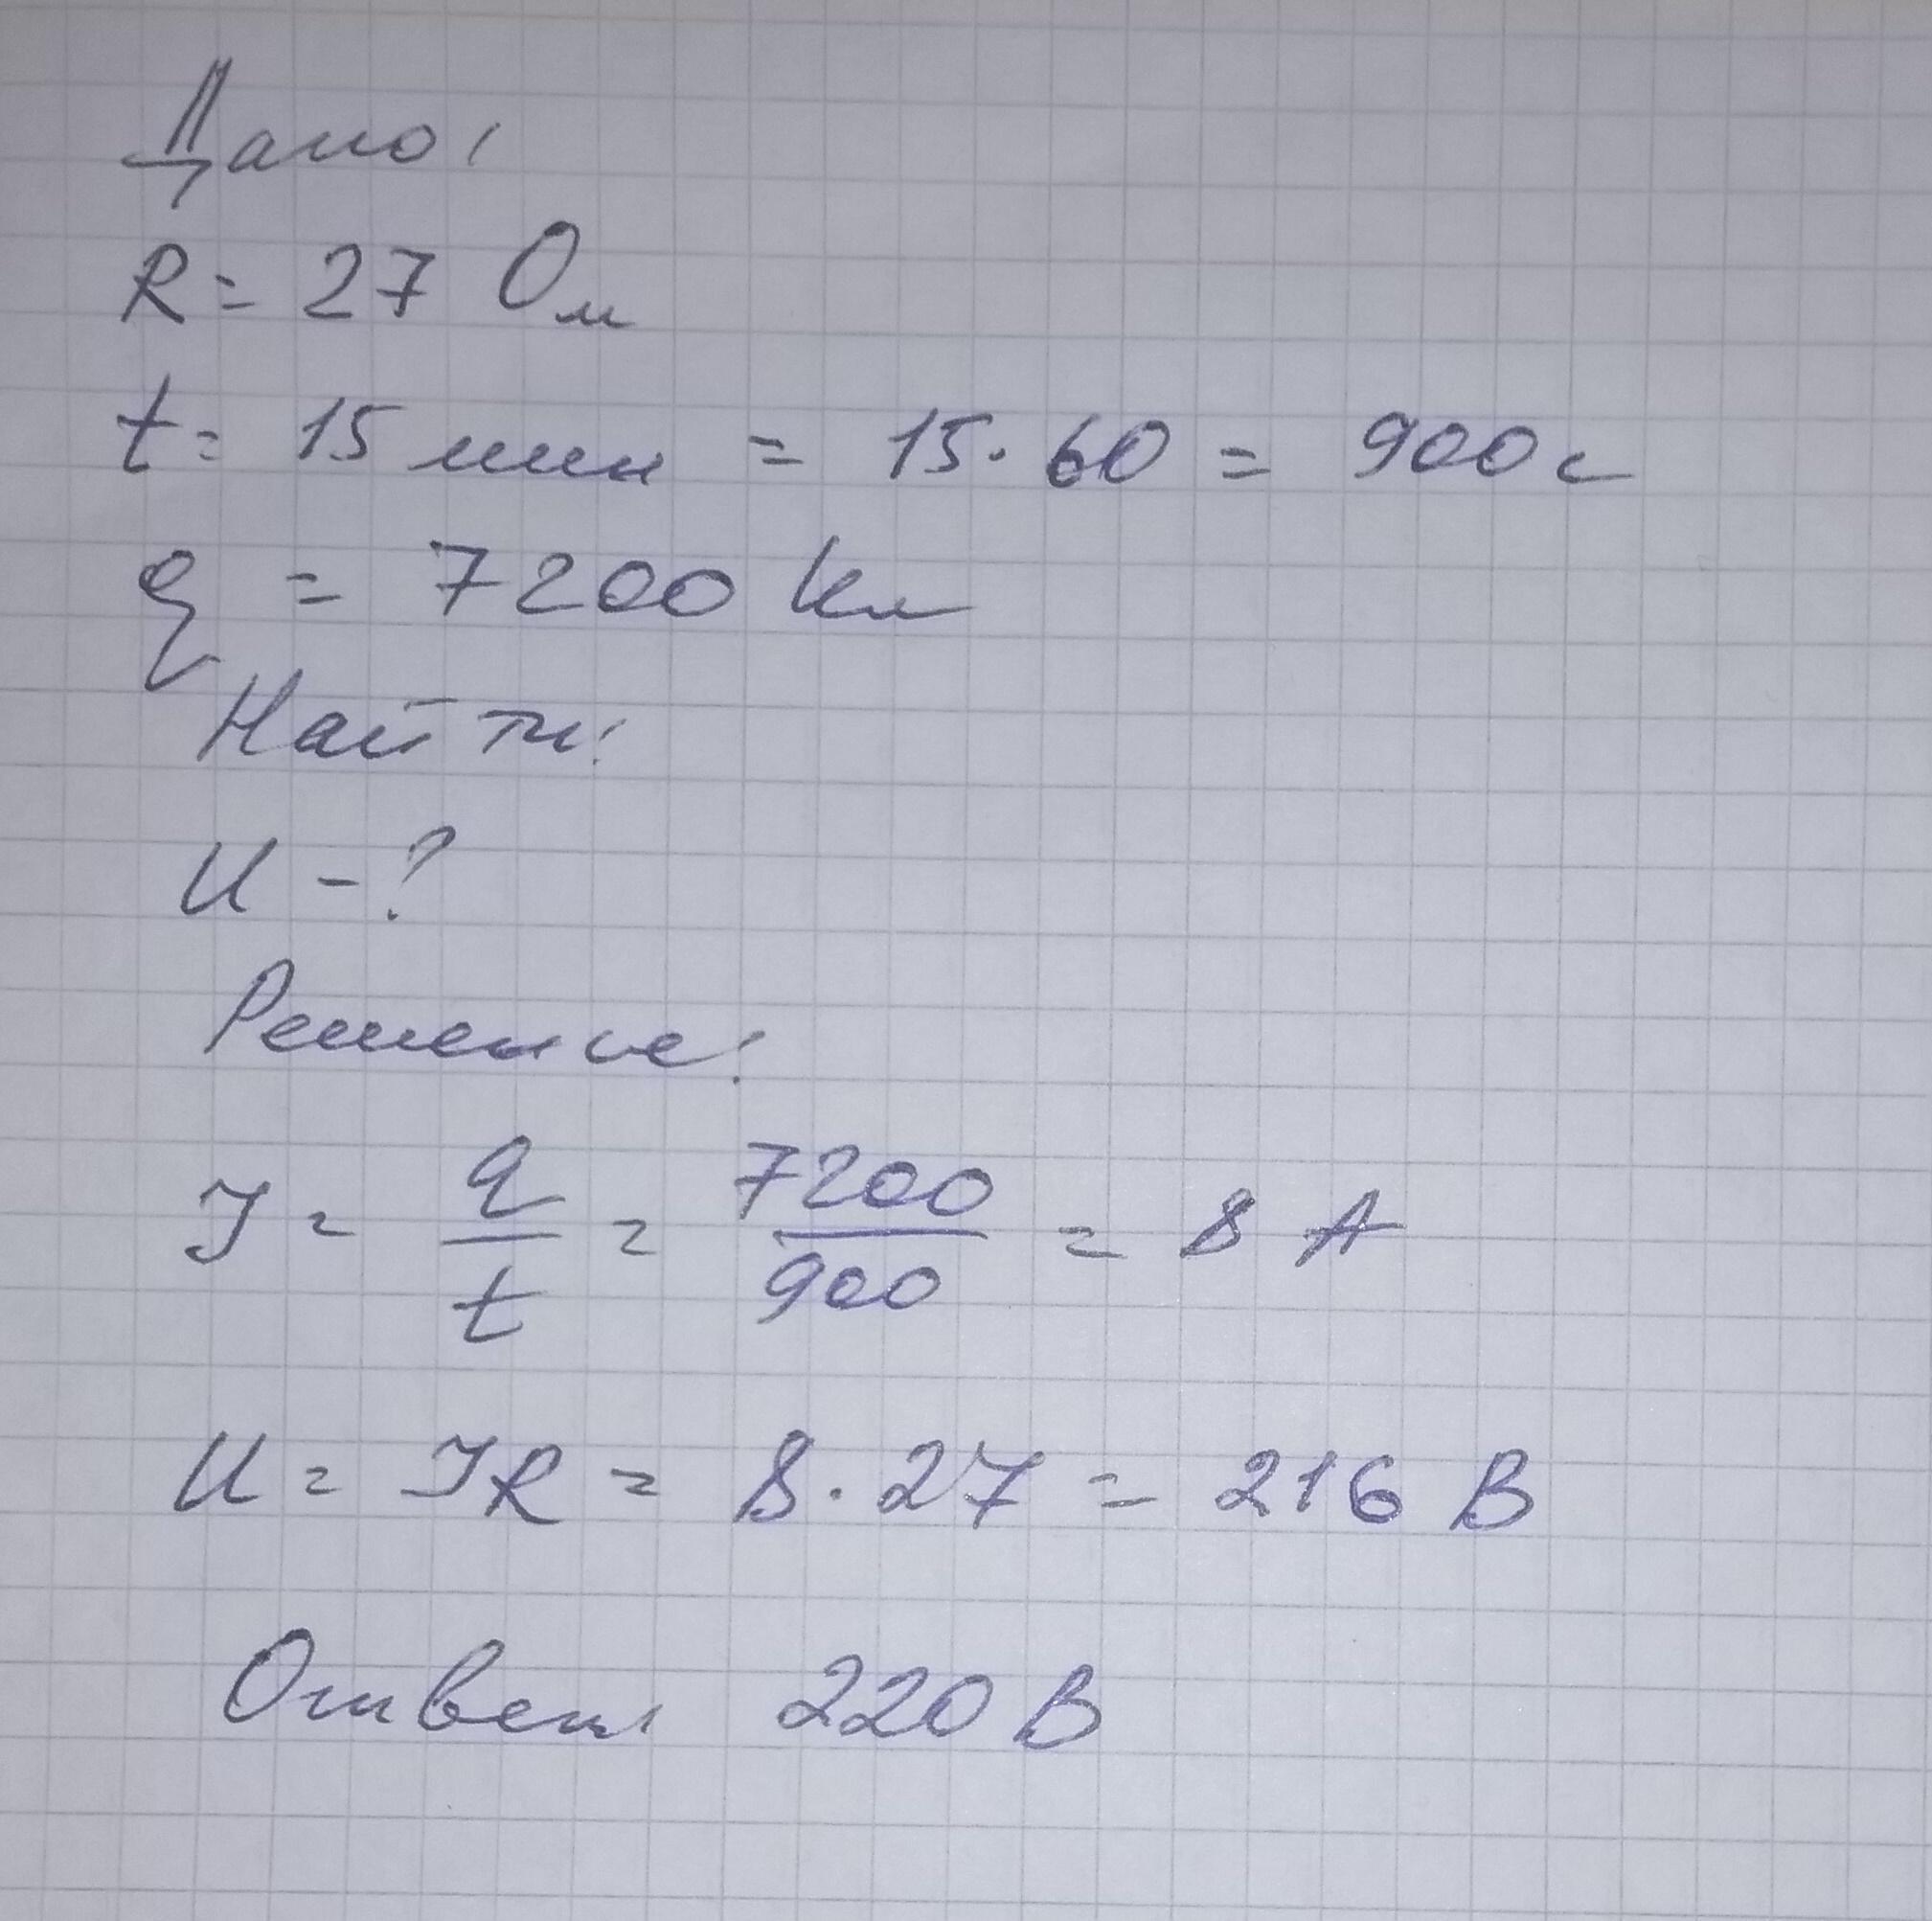 Дано:
R = 27 Ом
t = 15 мин = 15·60 = 900 с
q = 7200 Кл
Найти:
U - ?
Решение:
I = q/t = 7200/900 = 8 А
U = IR = 8·27 = 216 В
Ответ: 220 В